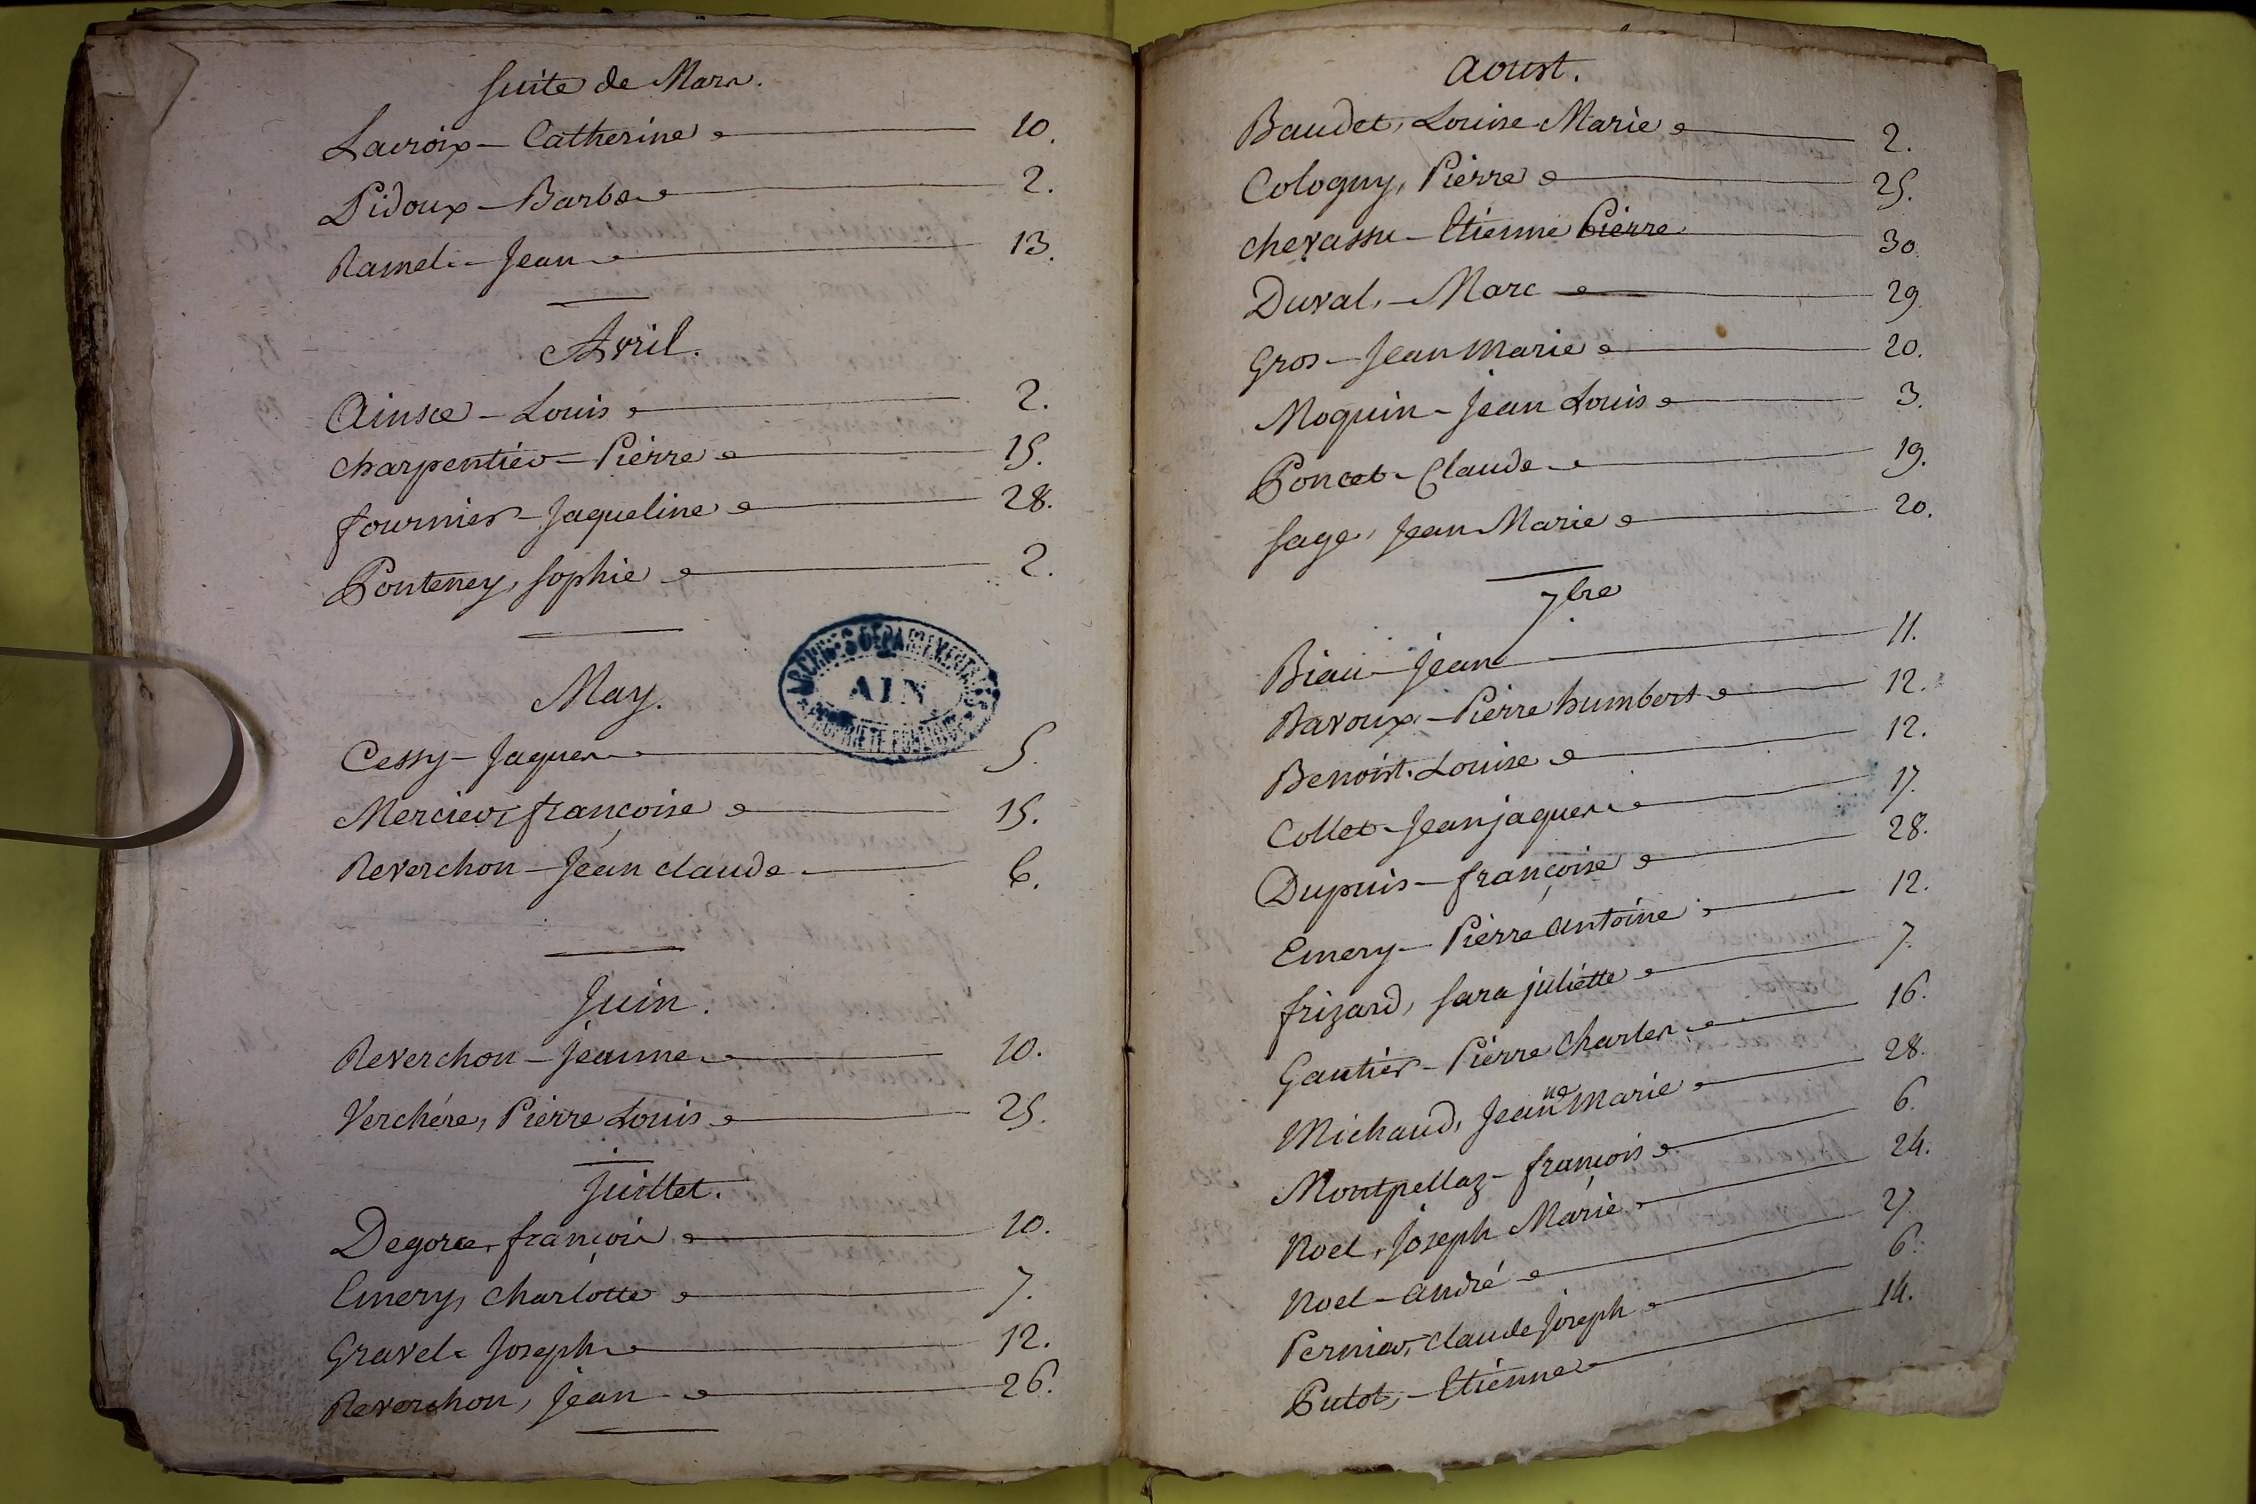 Suite de Mars.
Lacroix - Catherine 10.
Pidoux - Barbe 2.
Ramel - Jean 13.
Avril.
Ainsce - Louis 2.
Charpentier - Pierre 15.
fournier - Jaqueline 28.
Ponteney, Sophie 2.
ARCHIVES DÉPARTEMENTALES
AIN
PROPRIÉTÉ PUBLIQUE
May.
Cessy - Jaques 5.
Mercier, françoise 15.
Reverchon - Jean claude 6.
Juin.
Reverchon - Jeanne 10.
Verchére, Pierre Louis 25.
Juillet.
Degorce, françois 10.
Emery, Charlotte 7.
Gravel - Joseph 12.
Reverchon, Jean 26.
Aoust.
Baudet, Louise Marie 2.
Cologny, Pierre 25.
Chevassu - Etienne Pierre 30.
Duval, - Marc 29.
Gros - Jean Marie 20.
Moquin - Jean Louis 3.
Poncet - Claude 19.
Sage, Jean Marie 20.
7.bre
Biau - Jean 11.
Bavoux, - Pierre humbert 12.
Benoist. Louise 12.
Collet - Jean jaques 17.
Dupuis - françoise 28.
Emery - Pierre Antoine 12.
frizard, Sara juliette 7.
Gautier - Pierre Charles 16.
Michaud, Jeanne Marie 28.
Montpellaz - françois 6.
Noel, Joseph Marie 24.
Noel - André 27.
Pernier, Claude Joseph 6.
Putot, - Etienne 14.